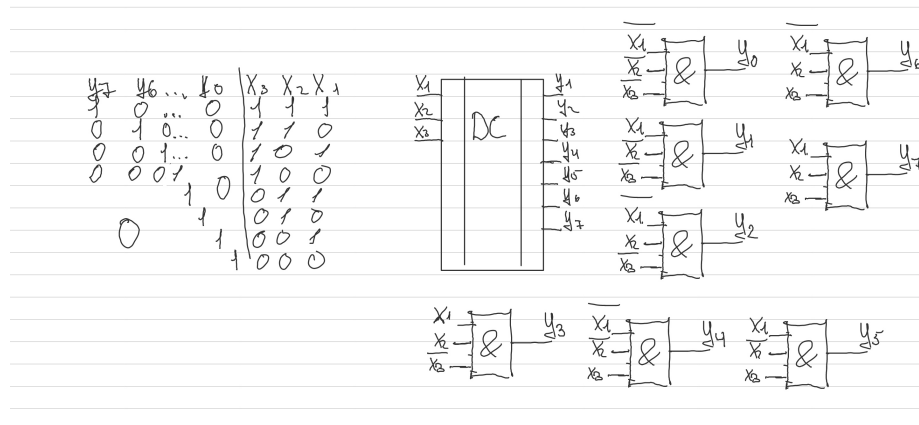 y7 y6 ... y0 X3 X2 X1
1 0 ... 0 1 1 1
0 1 0... 0 1 1 0
0 0 1... 0 1 0 1
0 0 0 1 1 0 0
1 0 0 1 1
1 0 1 0
0 1 0 0 1
1 0 0 0
X1
X2
X3
DC
y1
y2
y3
y4
y5
y6
y7
X̅1
X̅2
X̅3
&
y0
X̅1
X2
X3
&
y6
X1
X̅2
X̅3
&
y1
X1
X2
X3
&
y7
X̅1
X2
X̅3
&
y2
X1
X2
X̅3
&
y3
X̅1
X̅2
X3
&
y4
X1
X̅2
X3
&
y5